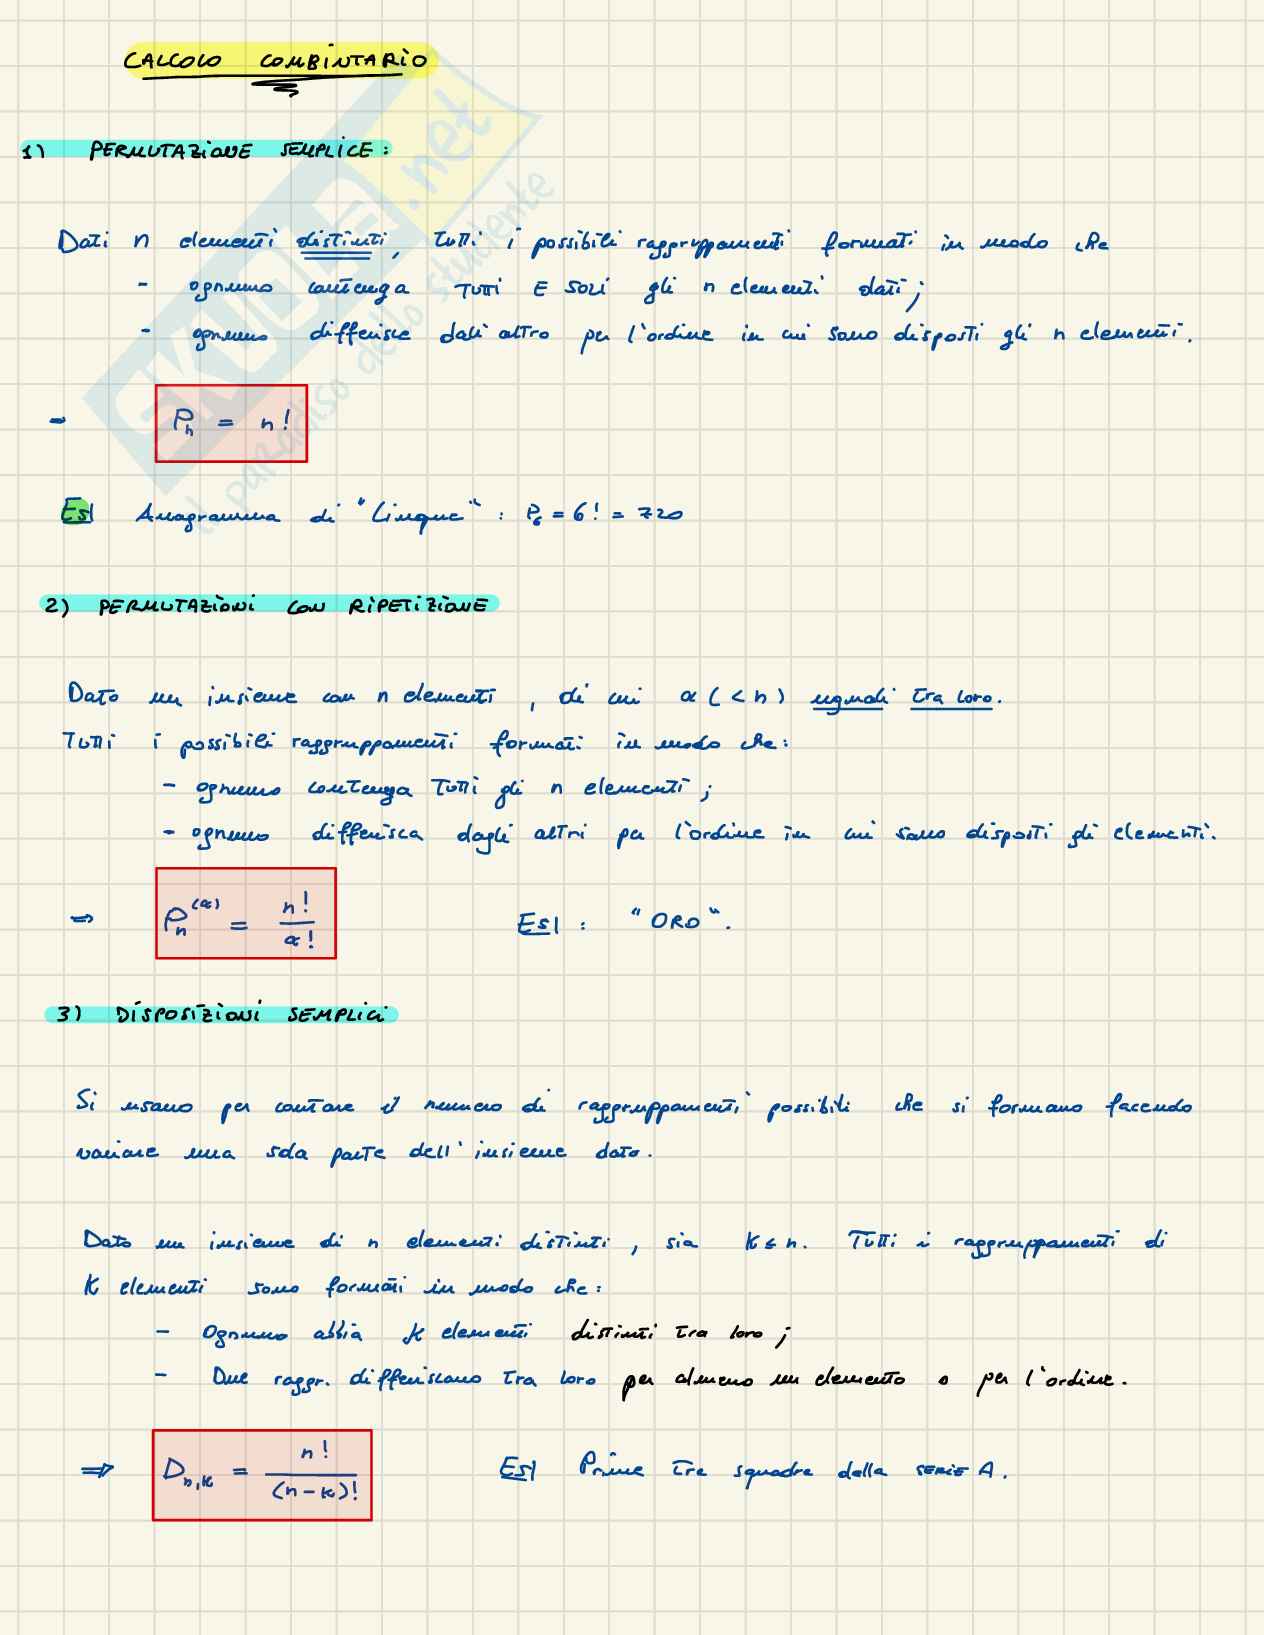 CALCOLO COMBINTARIO
1) PERMUTAZIONE SEMPLICE:
Dati n elementi distinti, tutti i possibili raggruppamenti formati in modo che
- ognuno contenga TUTTI E SOLI gli n elementi dati;
- ognuno differisce dall'altro per l'ordine in cui sono disposti gli n elementi.
→ Pn = n!
Es| Anagramma di "Lingue": P6 = 6! = 720
2) PERMUTAZIONI CON RIPETIZIONE
Dato un insieme con n elementi, di cui α (< n) uguali tra loro.
Tutti i possibili raggruppamenti formati in modo che:
- ognuno contenga tutti gli n elementi;
- ognuno differisca dagli altri per l'ordine in cui sono disposti gli elementi.
⇒ Pn^(α) = n! / α! Es| : "ORO".
3) DISPOSIZIONI SEMPLICI
Si usano per contare il numero di raggruppamenti possibili che si formano facendo
variare una sola parte dell'insieme dato.
Dato un insieme di n elementi distinti, sia K ≤ n. Tutti i raggruppamenti di
K elementi sono formati in modo che:
- Ognuno abbia K elementi distinti tra loro;
- Due raggr. differiscano tra loro per almeno un elemento o per l'ordine.
⇒ Dn,K = n! / (n-K)! Es| Prime tre squadre della SERIE A.
SKUOLA.net
il paradiso dello studente